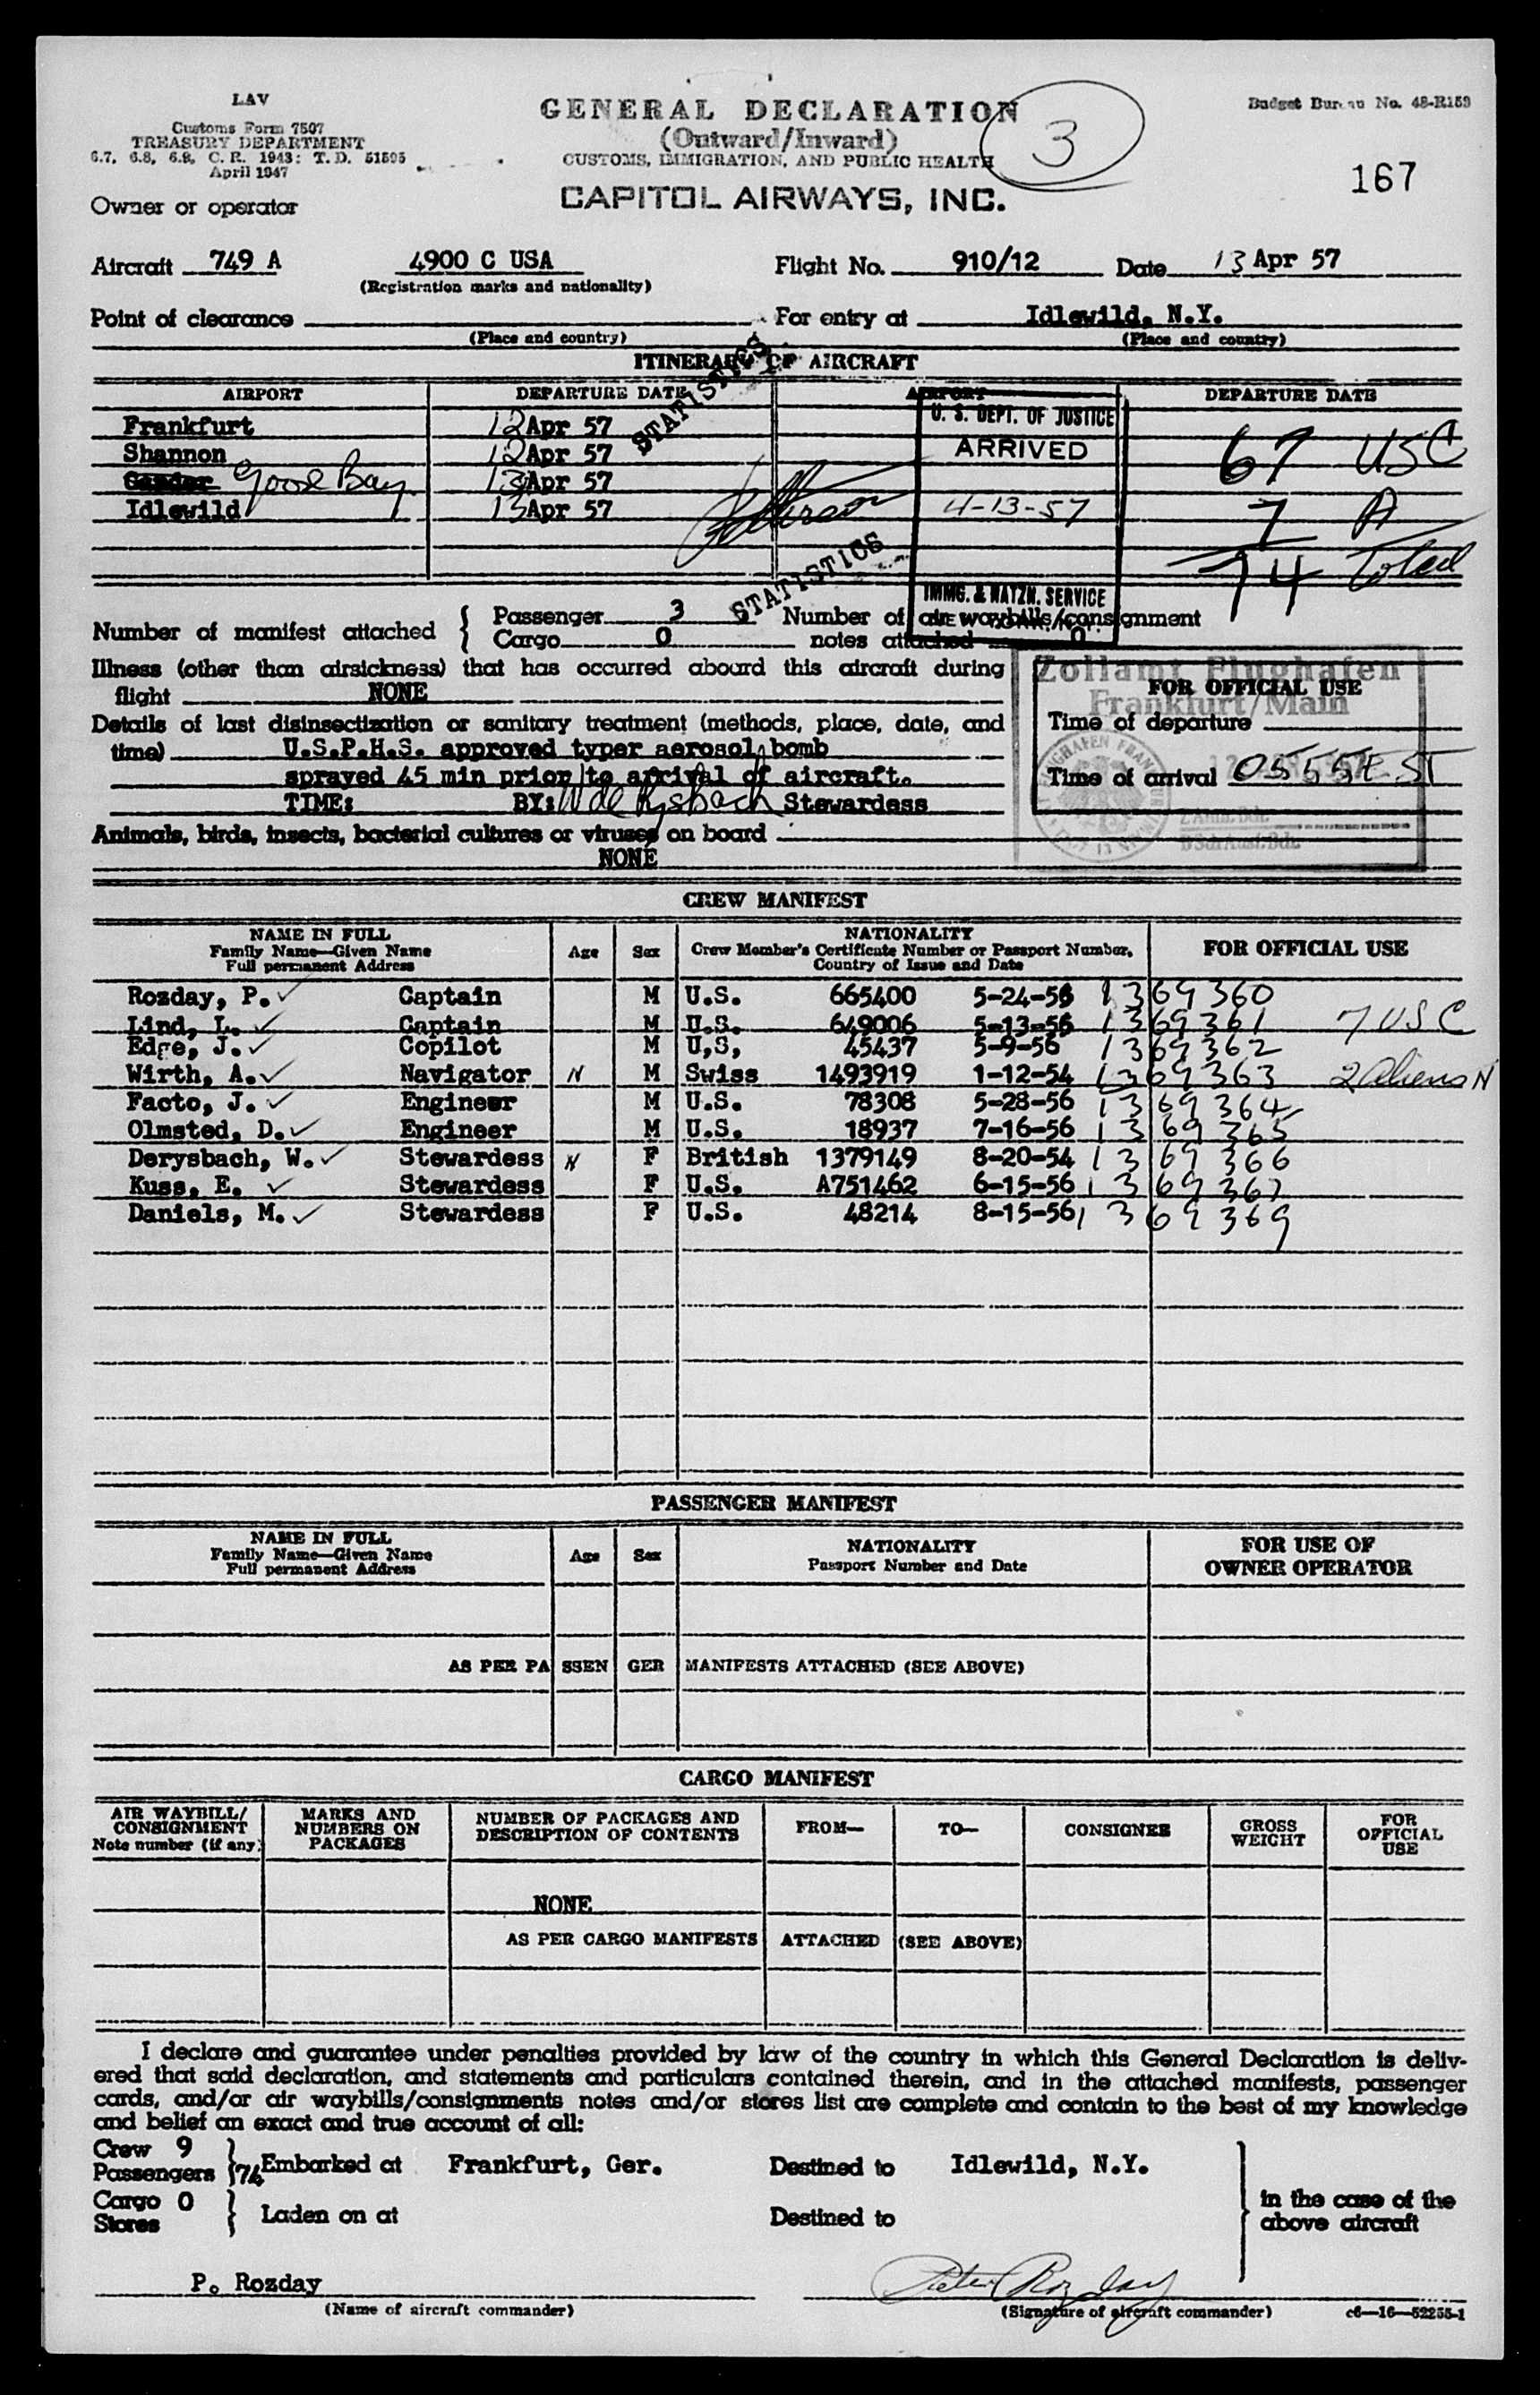 LAV
Customs Form 7507
TREASURY DEPARTMENT
6.7, 6.8, 6.9, C. R. 1943: T. D. 51595
April 1947
GENERAL DECLARATION
(Outward/Inward)
CUSTOMS, IMMIGRATION, AND PUBLIC HEALTH
3
Budget Bureau No. 48-R159
167
CAPITOL AIRWAYS, INC.
Owner or operator
Aircraft 749 A 4900 C USA Flight No. 910/12 Date 13 Apr 57
(Registration marks and nationality)
Point of clearance For entry at Idlewild, N.Y.
(Place and country) (Place and country)
ITINERARY OF AIRCRAFT
AIRPORT DEPARTURE DATE AIRPORT DEPARTURE DATE
Frankfurt 12 Apr 57
Shannon 12 Apr 57
Gander Goose Bay 13 Apr 57
Idlewild 13 Apr 57
STATISTICS
STATISTICS
U. S. DEPT. OF JUSTICE
ARRIVED
4-13-57
IMMG. & NATZN. SERVICE
67 USC
7 A
74 Total
Number of manifest attached { Passenger 3 Number of air waybills/consignment
Cargo 0 notes attached 0
Illness (other than airsickness) that has occurred aboard this aircraft during
flight NONE
Details of last disinsectization or sanitary treatment (methods, place, date, and
time) U.S.P.H.S. approved typer aerosol bomb
sprayed 45 min prior to arrival of aircraft.
TIME: BY: W de Rysbach Stewardess
Animals, birds, insects, bacterial cultures or viruses on board
NONE
Zollamt Flughafen
Frankfurt/Main
FOR OFFICIAL USE
Time of departure
Time of arrival 0555 EST
CREW MANIFEST
NAME IN FULL
Family Name—Given Name
Full permanent Address
Age
Sex
NATIONALITY
Crew Member's Certificate Number or Passport Number,
Country of Issue and Date
FOR OFFICIAL USE
Rozday, P. ✓ Captain M U.S. 665400 5-24-56 1369360
Lind, L. ✓ Captain M U.S. 649006 5-13-56 1369361 7 USC
Edge, J. ✓ Copilot M U,S, 45437 5-9-56 1369362
Wirth, A. ✓ Navigator N M Swiss 1493919 1-12-54 1369363 2 Aliens N
Facto, J. ✓ Engineer M U.S. 78308 5-28-56 1369364
Olmsted, D. ✓ Engineer M U.S. 18937 7-16-56 1369365
Derysbach, W. ✓ Stewardess N F British 1379149 8-20-54 1369366
Kuss, E. ✓ Stewardess F U.S. A751462 6-15-56 1369367
Daniels, M. ✓ Stewardess F U.S. 48214 8-15-56 1369369
PASSENGER MANIFEST
NAME IN FULL
Family Name—Given Name
Full permanent Address
Age
Sex
NATIONALITY
Passport Number and Date
FOR USE OF
OWNER OPERATOR
AS PER PASSENGER MANIFESTS ATTACHED (SEE ABOVE)
CARGO MANIFEST
AIR WAYBILL/
CONSIGNMENT
Note number (if any)
MARKS AND
NUMBERS ON
PACKAGES
NUMBER OF PACKAGES AND
DESCRIPTION OF CONTENTS
FROM—
TO—
CONSIGNEE
GROSS
WEIGHT
FOR
OFFICIAL
USE
NONE
AS PER CARGO MANIFESTS ATTACHED (SEE ABOVE)
I declare and guarantee under penalties provided by law of the country in which this General Declaration is deliv-
ered that said declaration, and statements and particulars contained therein, and in the attached manifests, passenger
cards, and/or air waybills/consignments notes and/or stores list are complete and contain to the best of my knowledge
and belief an exact and true account of all:
Crew 9
Passengers 74 } Embarked at Frankfurt, Ger. Destined to Idlewild, N.Y.
Cargo 0
Stores } Laden on at Destined to
in the case of the
above aircraft
P. Rozday Peter Rozday
(Name of aircraft commander) (Signature of aircraft commander) c6—16—52255-1